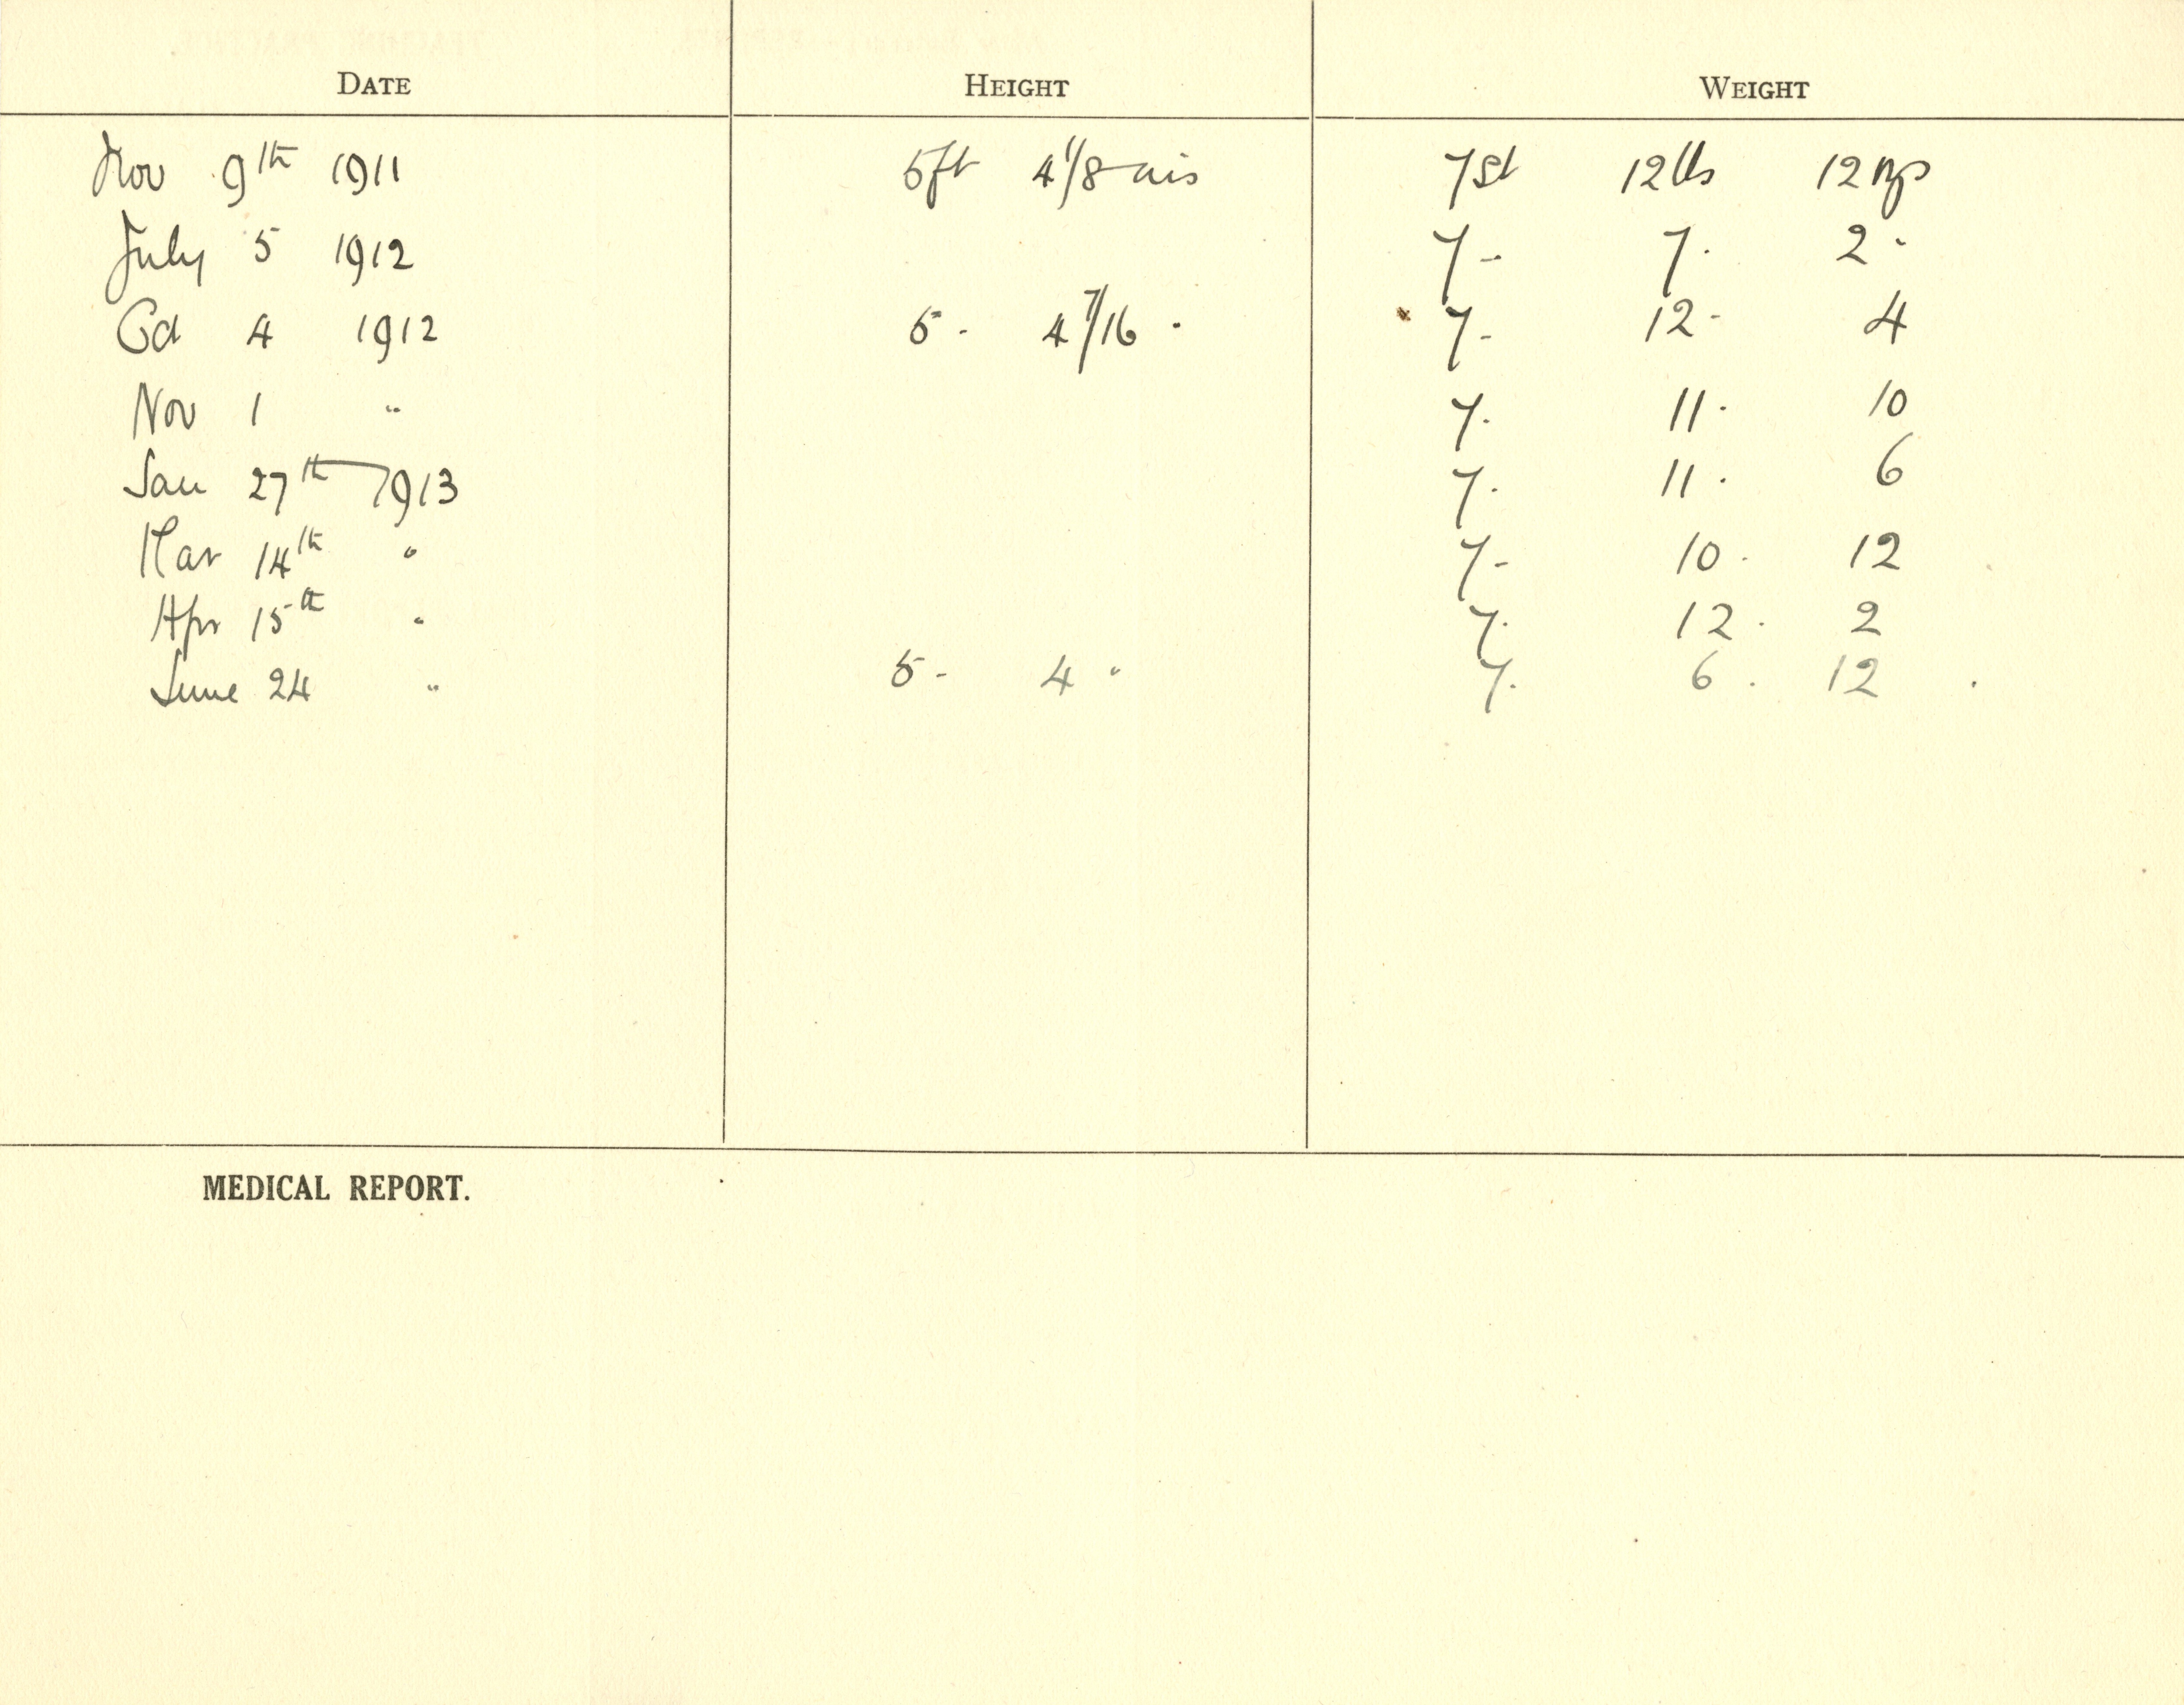 DATE HEIGHT WEIGHT
Nov 9th 1911 5ft 4 1/8 ins 7st 12lbs 12ozs
July 5 1912 7 - 7 . 2 "
Oct 4 1912 5 - 4 7/16 " 7 - 12 - 4
Nov 1 " 7 . 11 . 10
Jan 27th 1913 7 . 11 . 6
Mar 14th " 7 - 10 . 12
Apr 15th " 7 . 12 . 2
June 24 " 5 - 4 " 7 . 6 . 12 .
MEDICAL REPORT.